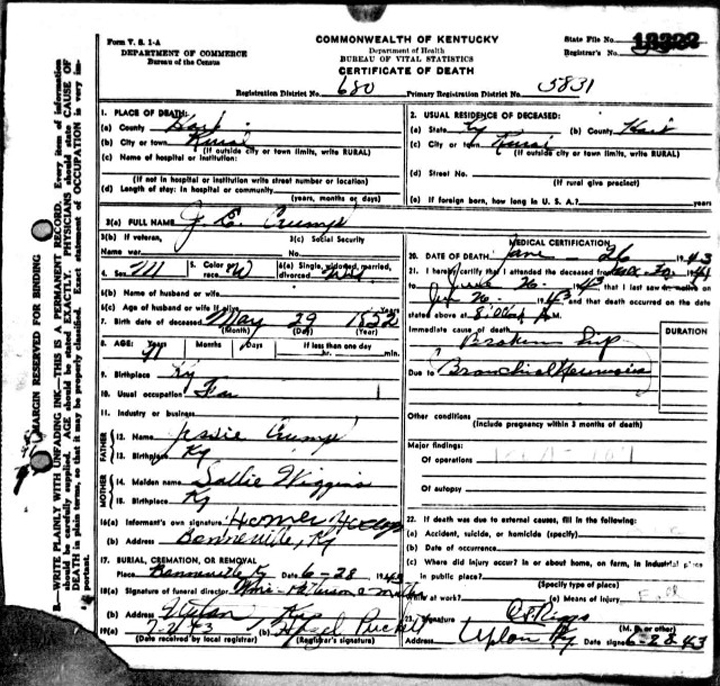 Form V. S. 1-A
DEPARTMENT OF COMMERCE
Bureau of the Census
COMMONWEALTH OF KENTUCKY
Department of Health
BUREAU OF VITAL STATISTICS
CERTIFICATE OF DEATH
State File No.
Registrar's No.
Registration District No. 680 Primary Registration District No. 5831
MARGIN RESERVED FOR BINDING
B.—WRITE PLAINLY WITH UNFADING INK—THIS IS A PERMANENT RECORD. Every item of information
should be carefully supplied. AGE should be stated EXACTLY. PHYSICIANS should state CAUSE OF
DEATH in plain terms, so that it may be properly classified. Exact statement of OCCUPATION is very im-
portant.
1. PLACE OF DEATH:
(a) County Hart
(b) City or town Rural
(If outside city or town limits, write RURAL)
(c) Name of hospital or institution:
(If not in hospital or institution write street number or location)
(d) Length of stay: In hospital or community
(years, months or days)
2. USUAL RESIDENCE OF DECEASED:
(a) State Ky (b) County Hart
(c) City or town Rural
(If outside city or town limits, write RURAL)
(d) Street No.
(If rural give precinct)
(e) If foreign born, how long in U. S. A.? years
3(a) FULL NAME J. E. Crump
3(b) If veteran, 3(c) Social Security
Name war No.
4. Sex M 5. Color or race W 6(a) Single, widowed, married, divorced Wid
6(b) Name of husband or wife
6(c) Age of husband or wife if alive Years
7. Birth date of deceased May 29 1852
(Month) (Day) (Year)
8. AGE: Years 91 Months Days If less than one day
hr. min.
9. Birthplace Ky
10. Usual occupation
11. Industry or business
FATHER
12. Name Jessie Crump
13. Birthplace Ky
MOTHER
14. Maiden name Sallie Wiggins
15. Birthplace Ky
16(a) Informant's own signature Homer
(b) Address Bonnieville, Ky
17. BURIAL, CREMATION, OR REMOVAL
Place Bonnieville Ky Date 6-28 1943
18(a) Signature of funeral director
(b) Address Ky
19(a) 7-2-43 (b) Hazel Puckett
(Date received by local registrar) (Registrar's signature)
MEDICAL CERTIFICATION
20. DATE OF DEATH June 26 1943
21. I hereby certify that I attended the deceased from
to June 26 1943, that I last saw h alive on
Jun 26, 1943 and that death occurred on the date
stated above at M.
Immediate cause of death DURATION
Broken hip
Due to Bronchial Pneumonia
Other conditions
(Include pregnancy within 3 months of death)
Major findings:
Of operations
Of autopsy
22. If death was due to external causes, fill in the following:
(a) Accident, suicide, or homicide (specify)
(b) Date of occurrence
(c) Where did injury occur? In or about home, on farm, in industrial place
in public place?
(Specify type of place)
While at work? (e) Means of injury Fall
23. Signature
(M. D. or other)
Address Upton Ky Date signed 6-28 43